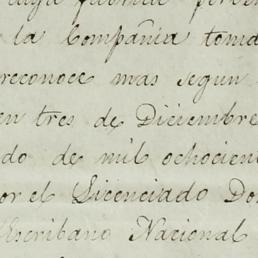 la Compañia toma
reconoce mas segun
en tres de Diciembre
do de mil ochocien
or el Licenciado Do
Escribano Nacional